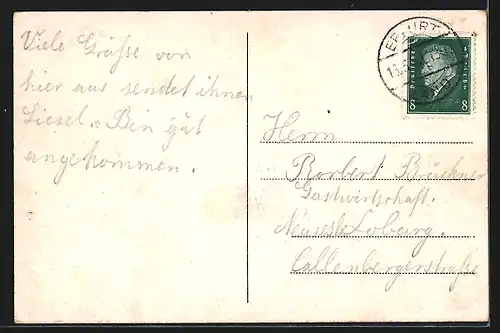 Viele Grüße von
hier aus sendet ihnen
Liesel. Bin gut
angekommen.
ERFURT
Deutsches Reich
8 8
Herrn
Rorbert Brückner
Gastwirtschaft.
Coburg.
Callenbergerstraße